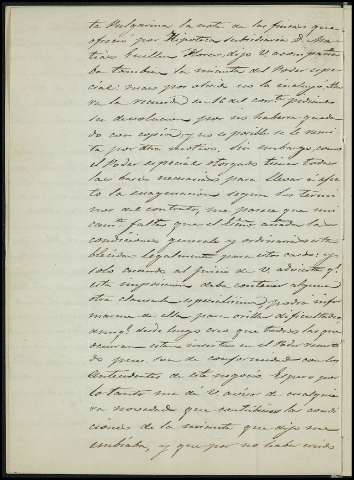 ta Vulgarina la nota de las fincas que
ofrecia por Hipoteca subsidiaria D. Ma-
tias Guillen Flores, dijo V. acompaña-
ba tambien la minuta del Poder espe-
cial: mas por olvido no lo
va la recibida en 16 del corr.te
se devolviera por no haberse queda-
do con copia, y no es posible se le remi-
ta por otro motivo. Sin embargo, como
el Poder especial otorgado tiene todas
las bases necesarias para llevar á efec-
to la enagenacion segun los térmi-
nos del contrato, no parece que
falta que el añada las
condiciones generales y ordinarias esta-
blecidas legalmente para estos casos: y
solo cuando al juicio de V. advierte q.e
este impresion deba contener alguna
otra clausula especialisima, podrá infor-
marme de ella para orillar dificultades,
aunq.e desde luego creo que todas las que
ocurran estan insertas en el Poder remiti-
do pues son de conformidad con los
antecedentes de este negocio. Espero por
lo tanto me dé V. aviso de cualquie-
ra novedad que contubiera las condi-
ciones de la minuta que dijo me
embiaba, y que por no haber venido